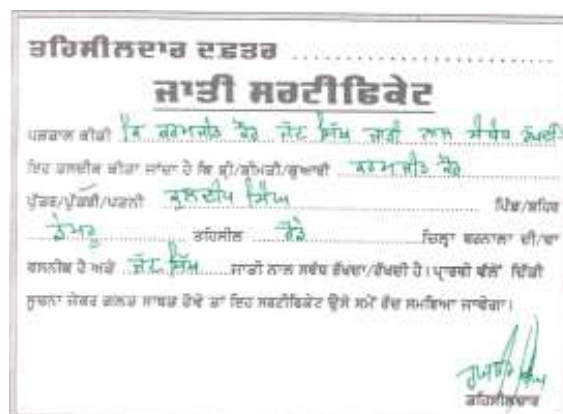 ਤਹਿਸੀਲਦਾਰ ਦਫਤਰ ........................
ਜਾਤੀ ਸਰਟੀਫਿਕੇਟ
ਪੜਤਾਲ ਕੀਤੀ ਕਿ ਕਰਮਜੀਤ ਕੌਰ ਜੱਟ ਸਿੱਖ ਜਾਤੀ ਨਾਲ ਸੰਬੰਧ ਰੱਖਦੀ
ਇਹ ਤਸਦੀਕ ਕੀਤਾ ਜਾਂਦਾ ਹੈ ਕਿ ਸ਼੍ਰੀ/ਸ਼੍ਰੀਮਤੀ/ਕੁਆਰੀ ਕਰਮਜੀਤ ਕੌਰ
ਪੁੱਤਰ/ਪੁੱਤਰੀ/ਪਤਨੀ ਕੁਲਦੀਪ ਸਿੰਘ ਪਿੰਡ/ਸ਼ਹਿਰ
ਤਹਿਸੀਲ ਜ਼ਿਲ੍ਹਾ ਬਰਨਾਲਾ ਦੀ/ਦਾ
ਵਸਨੀਕ ਹੈ ਅਤੇ ਜੱਟ ਸਿੱਖ ਜਾਤੀ ਨਾਲ ਸਬੰਧ ਰੱਖਦਾ/ਰੱਖਦੀ ਹੈ। ਪ੍ਰਾਰਥੀ ਵੱਲੋਂ ਦਿੱਤੀ
ਸੂਚਨਾ ਜੇਕਰ ਗਲਤ ਸਾਬਤ ਹੋਵੇ ਤਾਂ ਇਹ ਸਰਟੀਫਿਕੇਟ ਉਸੇ ਸਮੇਂ ਰੱਦ ਸਮਝਿਆ ਜਾਵੇਗਾ।
ਤਹਿਸੀਲਦਾਰ